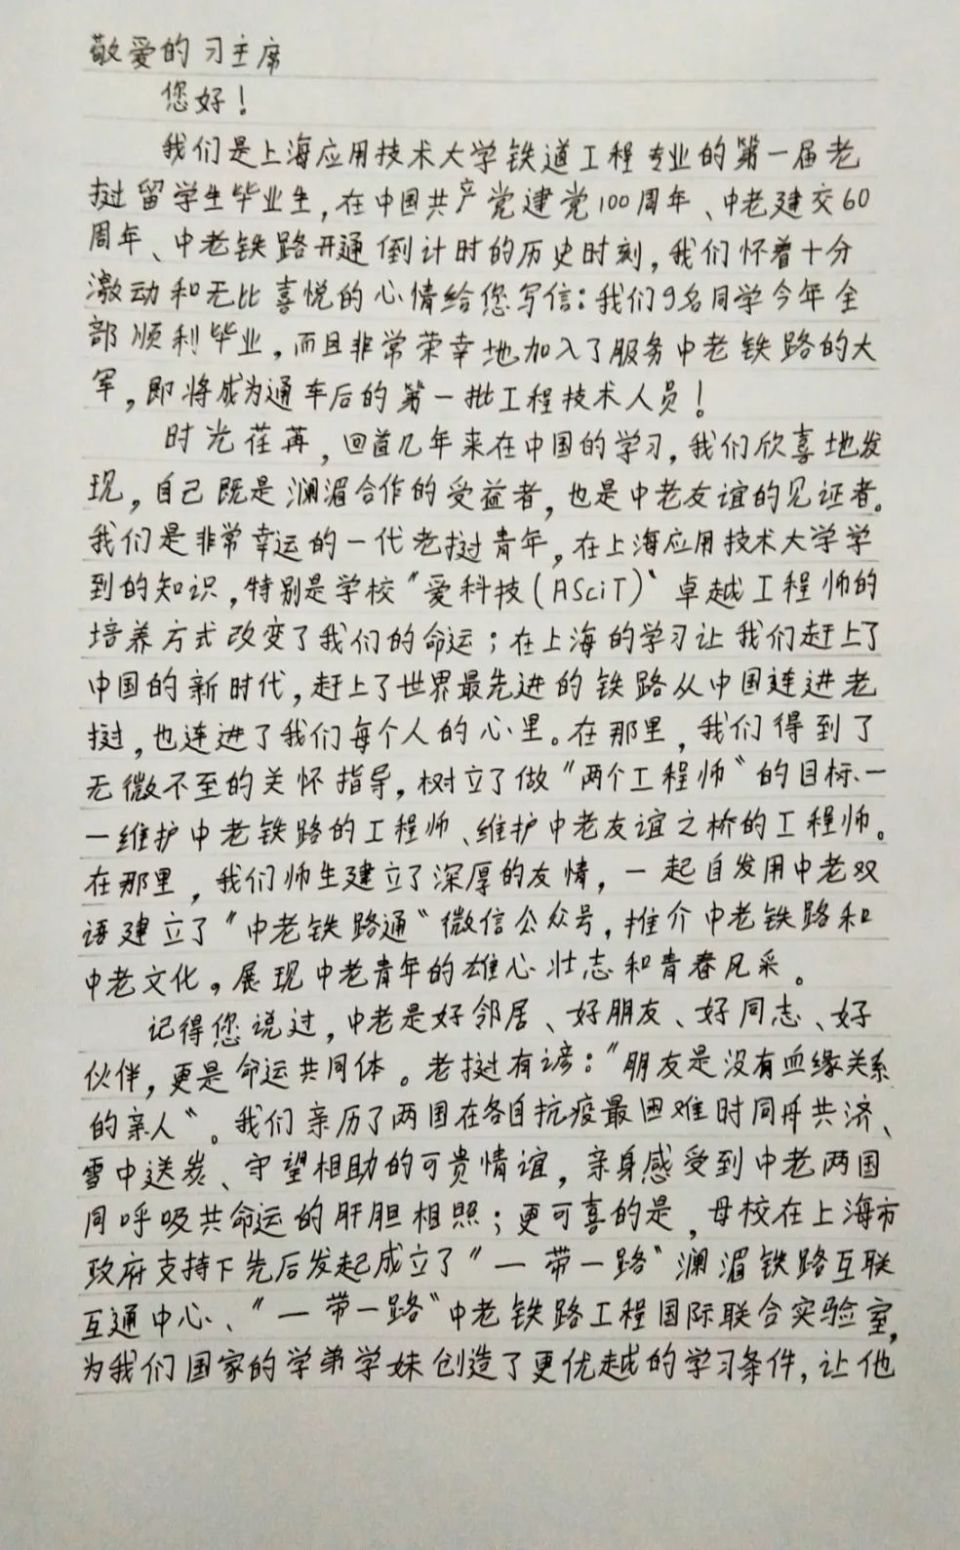 敬爱的习主席
您好！
我们是上海应用技术大学铁道工程专业的第一届老
挝留学生毕业生，在中国共产党建党100周年、中老建交60
周年、中老铁路开通倒计时的历史时刻，我们怀着十分
激动和无比喜悦的心情给您写信：我们9名同学今年全
部顺利毕业，而且非常荣幸地加入了服务中老铁路的大
军，即将成为通车后的第一批工程技术人员！
时光荏苒，回首几年来在中国的学习，我们欣喜地发
现，自己既是澜湄合作的受益者，也是中老友谊的见证者。
我们是非常幸运的一代老挝青年，在上海应用技术大学学
到的知识，特别是学校“爱科技(ASciT)”卓越工程师的
培养方式改变了我们的命运；在上海的学习让我们赶上了
中国的新时代，赶上了世界最先进的铁路从中国连进老
挝，也连进了我们每个人的心里。在那里，我们得到了
无微不至的关怀指导，树立了做“两个工程师”的目标—
—维护中老铁路的工程师、维护中老友谊之桥的工程师。
在那里，我们师生建立了深厚的友情，一起自发用中老双
语建立了“中老铁路通”微信公众号，推介中老铁路和
中老文化，展现中老青年的雄心壮志和青春风采。
记得您说过，中老是好邻居、好朋友、好同志、好
伙伴，更是命运共同体。老挝有谚：“朋友是没有血缘关系
的亲人”。我们亲历了两国在各自抗疫最困难时同舟共济、
雪中送炭、守望相助的可贵情谊，亲身感受到中老两国
同呼吸共命运的肝胆相照；更可喜的是，母校在上海市
政府支持下先后发起成立了“一带一路”澜湄铁路互联
互通中心、“一带一路”中老铁路工程国际联合实验室，
为我们国家的学弟学妹创造了更优越的学习条件，让他